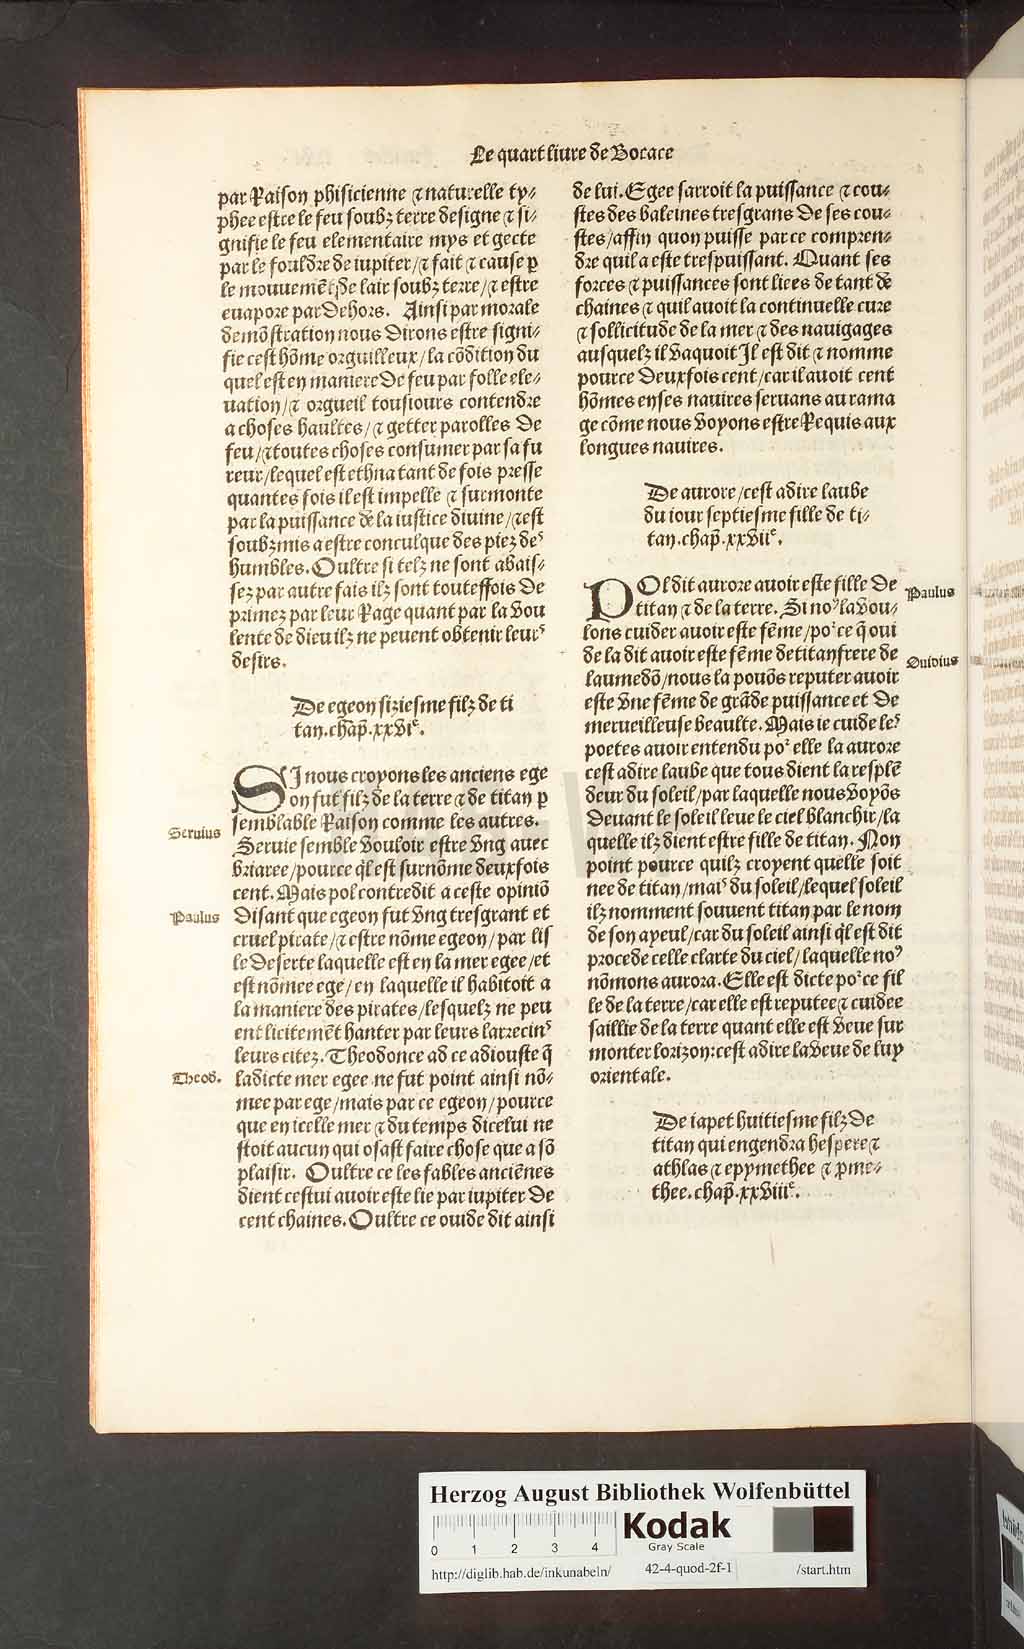 Le quart liure de Bocace
par Raison phisicienne ⁊ naturelle ty/
phee estre le feu soubz terre designe ⁊ si/
gnifie le feu elementaire mys et gecte
par le fouldre de iupiter/⁊ fait ⁊ cause p̲
le mouuemẽt de lair soubz terre/⁊ estre
euapore par dehors. Ainsi par morale
demõstration nous dirons estre signi/
fie cest hõme orguilleux/la cõdition du
quel est en maniere de feu par folle ele/
uation/⁊ orgueil tousiours contendre
a choses haultes/⁊ getter parolles de
feu/⁊ toutes choses consumer par sa fu
reur/lequel est ethna tant de fois presse
quantes fois il est impelle ⁊ surmonte
par la puissance de la iustice diuine/⁊ est
soubzmis a estre conculque des piez deˢ
humbles. Oultre si telz ne sont abais/
sez par autre fais ilz sont touteffois de
primez par leur Rage quant par la vou
lente de dieu ilz ne peuent obtenir leurˢ
desirs.
De egeon siziesme filz de ti
tan. chap̃. xxviᵉ.
SI nous croyons les anciens ege
on fut filz de la terre ⁊ de titan p̲
semblable Raison comme les autres.
Seruius
Seruie semble vouloir estre vng auec
briaree/pource q̃l est surnõme deux fois
cent. Mais pol contredit a ceste opiniõ
Paulus
disant que egeon fut vng tresgrant et
cruel pirate/⁊ estre nõme egeon/par lis
le deserte laquelle est en la mer egee/et
est nõmee ege/en laquelle il habitoit a
la maniere des pirates/lesquelz ne peu
ent licitemẽt hanter par leurs larrecinˢ
leurs citez. Theodonce ad ce adiouste q̃
Theod.
ladicte mer egee ne fut point ainsi nõ/
mee par ege/mais par ce egeon/pource
que en icelle mer ⁊ du temps dicelui ne
stoit aucun qui osast faire chose que a sõ
plaisir. Oultre ce les fables anciẽnes
dient cestui auoir este lie par iupiter de
cent chaines. Oultre ce ouide dit ainsi
de lui. Egee sarroit la puissance ⁊ cou/
stes des baleines tresgrans de ses cou/
stes/affin quon puisse par ce compren/
dre quil a este trespuissant. Quant ses
forces ⁊ puissances sont liees de tant de
chaines ⁊ quil auoit la continuelle cure
⁊ sollicitude de la mer ⁊ des nauigages
ausquelz il vaquoit Il est dit ⁊ nomme
pource deux fois cent/car il auoit cent
hõmes en ses nauires seruans au rama
ge cõme nous voyons estre Requis aux
longues nauires.
De aurore/cest a dire laube
du iour septiesme fille de ti/
tan. chap̃. xxviiᵉ.
POl dit aurore auoir este fille de
Paulus
titan ⁊ de la terre. Si noꝰ la vou/
lons cuider auoir este fẽme/poᷣ ce q̃ oui
de la dit auoir este fẽme de titan frere de
Ouidius
laumedõ/nous la pouõs reputer auoir
este vne fẽme de grãde puissance et de
merueilleuse beaulte. Mais ie cuide leˢ
poetes auoir entendu poᷣ elle la aurore
cest a dire laube que tous dient la resplẽ
deur du soleil/par laquelle nous voyõs
deuant le soleil leue le ciel blanchir/la
quelle ilz dient estre fille de titan. Non
point pource quilz croyent quelle soit
nee de titan/maiˢ du soleil/lequel soleil
ilz nomment souuent titan par le nom
de son ayeul/car du soleil ainsi q̃l est dit
procede celle clarte du ciel/laquelle noꝰ
nõmons aurora. Elle est dicte poᷣ ce fil
le de la terre/car elle est reputee ⁊ cuidee
saillie de la terre quant elle est veue sur
monter lorizon: cest a dire la veue de luy
orientale.
De iapet huitiesme filz de
titan qui engendra hespere ⁊
athlas ⁊ epymethee ⁊ p̲me/
thee. chap̃. xxviiiᵉ.
Herzog August Bibliothek Wolfenbüttel
0 1 2 3 4
Kodak
Gray Scale
http://diglib.hab.de/inkunabeln/ 42-4-quod-2f-1 /start.htm